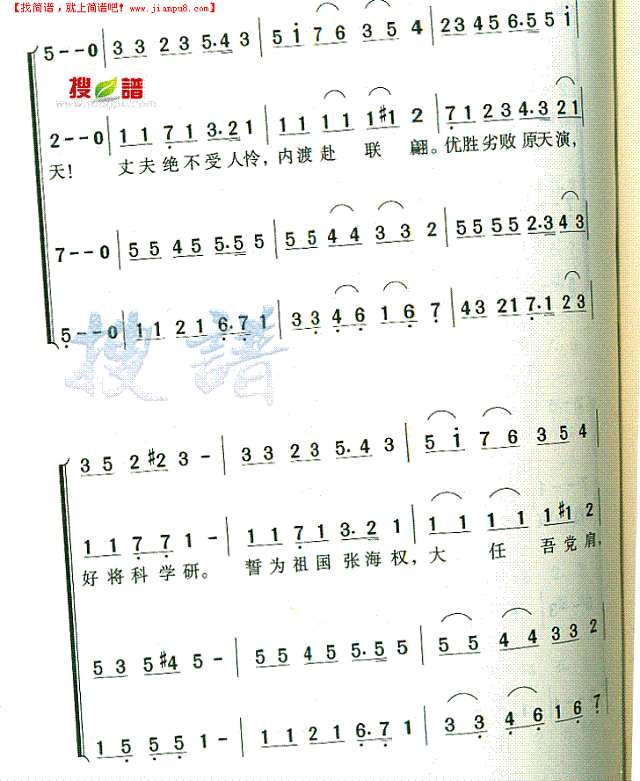 【找简谱，就上简谱吧！www.jianpu8.com】
5--0 | 3 3 2 3 5.4 3 | 5 i 7 6 3 5 4 | 2 3 4 5 6.5 5 i
搜谱
2--0 | 1 1 7 1 3.2 1 | 1 1 1 1 1 #1 2 | 7 1 2 3 4.3 2 1
天！ 丈夫绝不受人怜，内渡赴 联 翩。优胜劣败原天演，
7--0 | 5 5 4 5 5.5 5 | 5 5 4 4 3 3 2 | 5 5 5 5 2.3 4 3
5--0 | 1 1 2 1 6.7 1 | 3 3 4 6 1 6 7 | 4 3 2 1 7.1 2 3
搜谱
3 5 2 #2 3 - | 3 3 2 3 5.4 3 | 5 i 7 6 3 5 4
1 1 7 7 1 - | 1 1 7 1 3.2 1 | 1 1 1 1 1 #1 2
好将科学研。 誓为祖国张海权，大 任 吾党肩，
5 3 5 #4 5 - | 5 5 4 5 5.5 5 | 5 5 4 4 3 3 2
1 5 5 5 1 - | 1 1 2 1 6.7 1 | 3 3 4 6 1 6 7